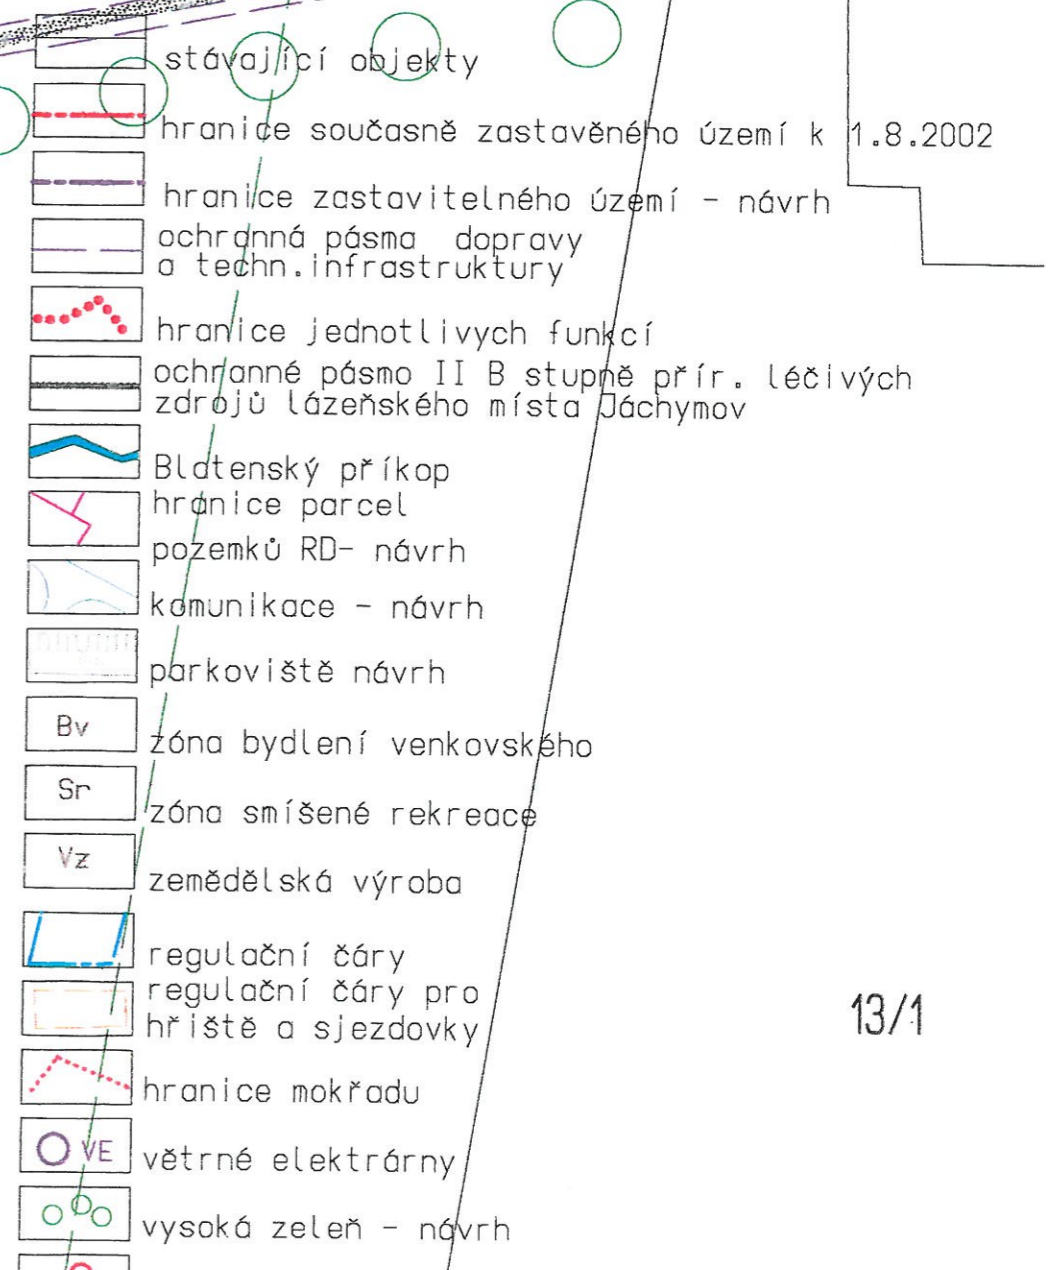 stávající objekty
hranice současně zastavěného území k 1.8.2002
hranice zastavitelného území - návrh
ochranná pásma dopravy
a techn.infrastruktury
hranice jednotlivych funkcí
ochranné pásmo II B stupně přír. léčivých
zdrojů lázeňského místa Jáchymov
Blatenský příkop
hranice parcel
pozemků RD- návrh
komunikace - návrh
parkoviště návrh
Bv
zóna bydlení venkovského
Sr
zóna smíšené rekreace
Vz
zemědělská výroba
regulační čáry
regulační čáry pro
hřiště a sjezdovky
13/1
hranice mokřadu
VE
větrné elektrárny
vysoká zeleň - návrh